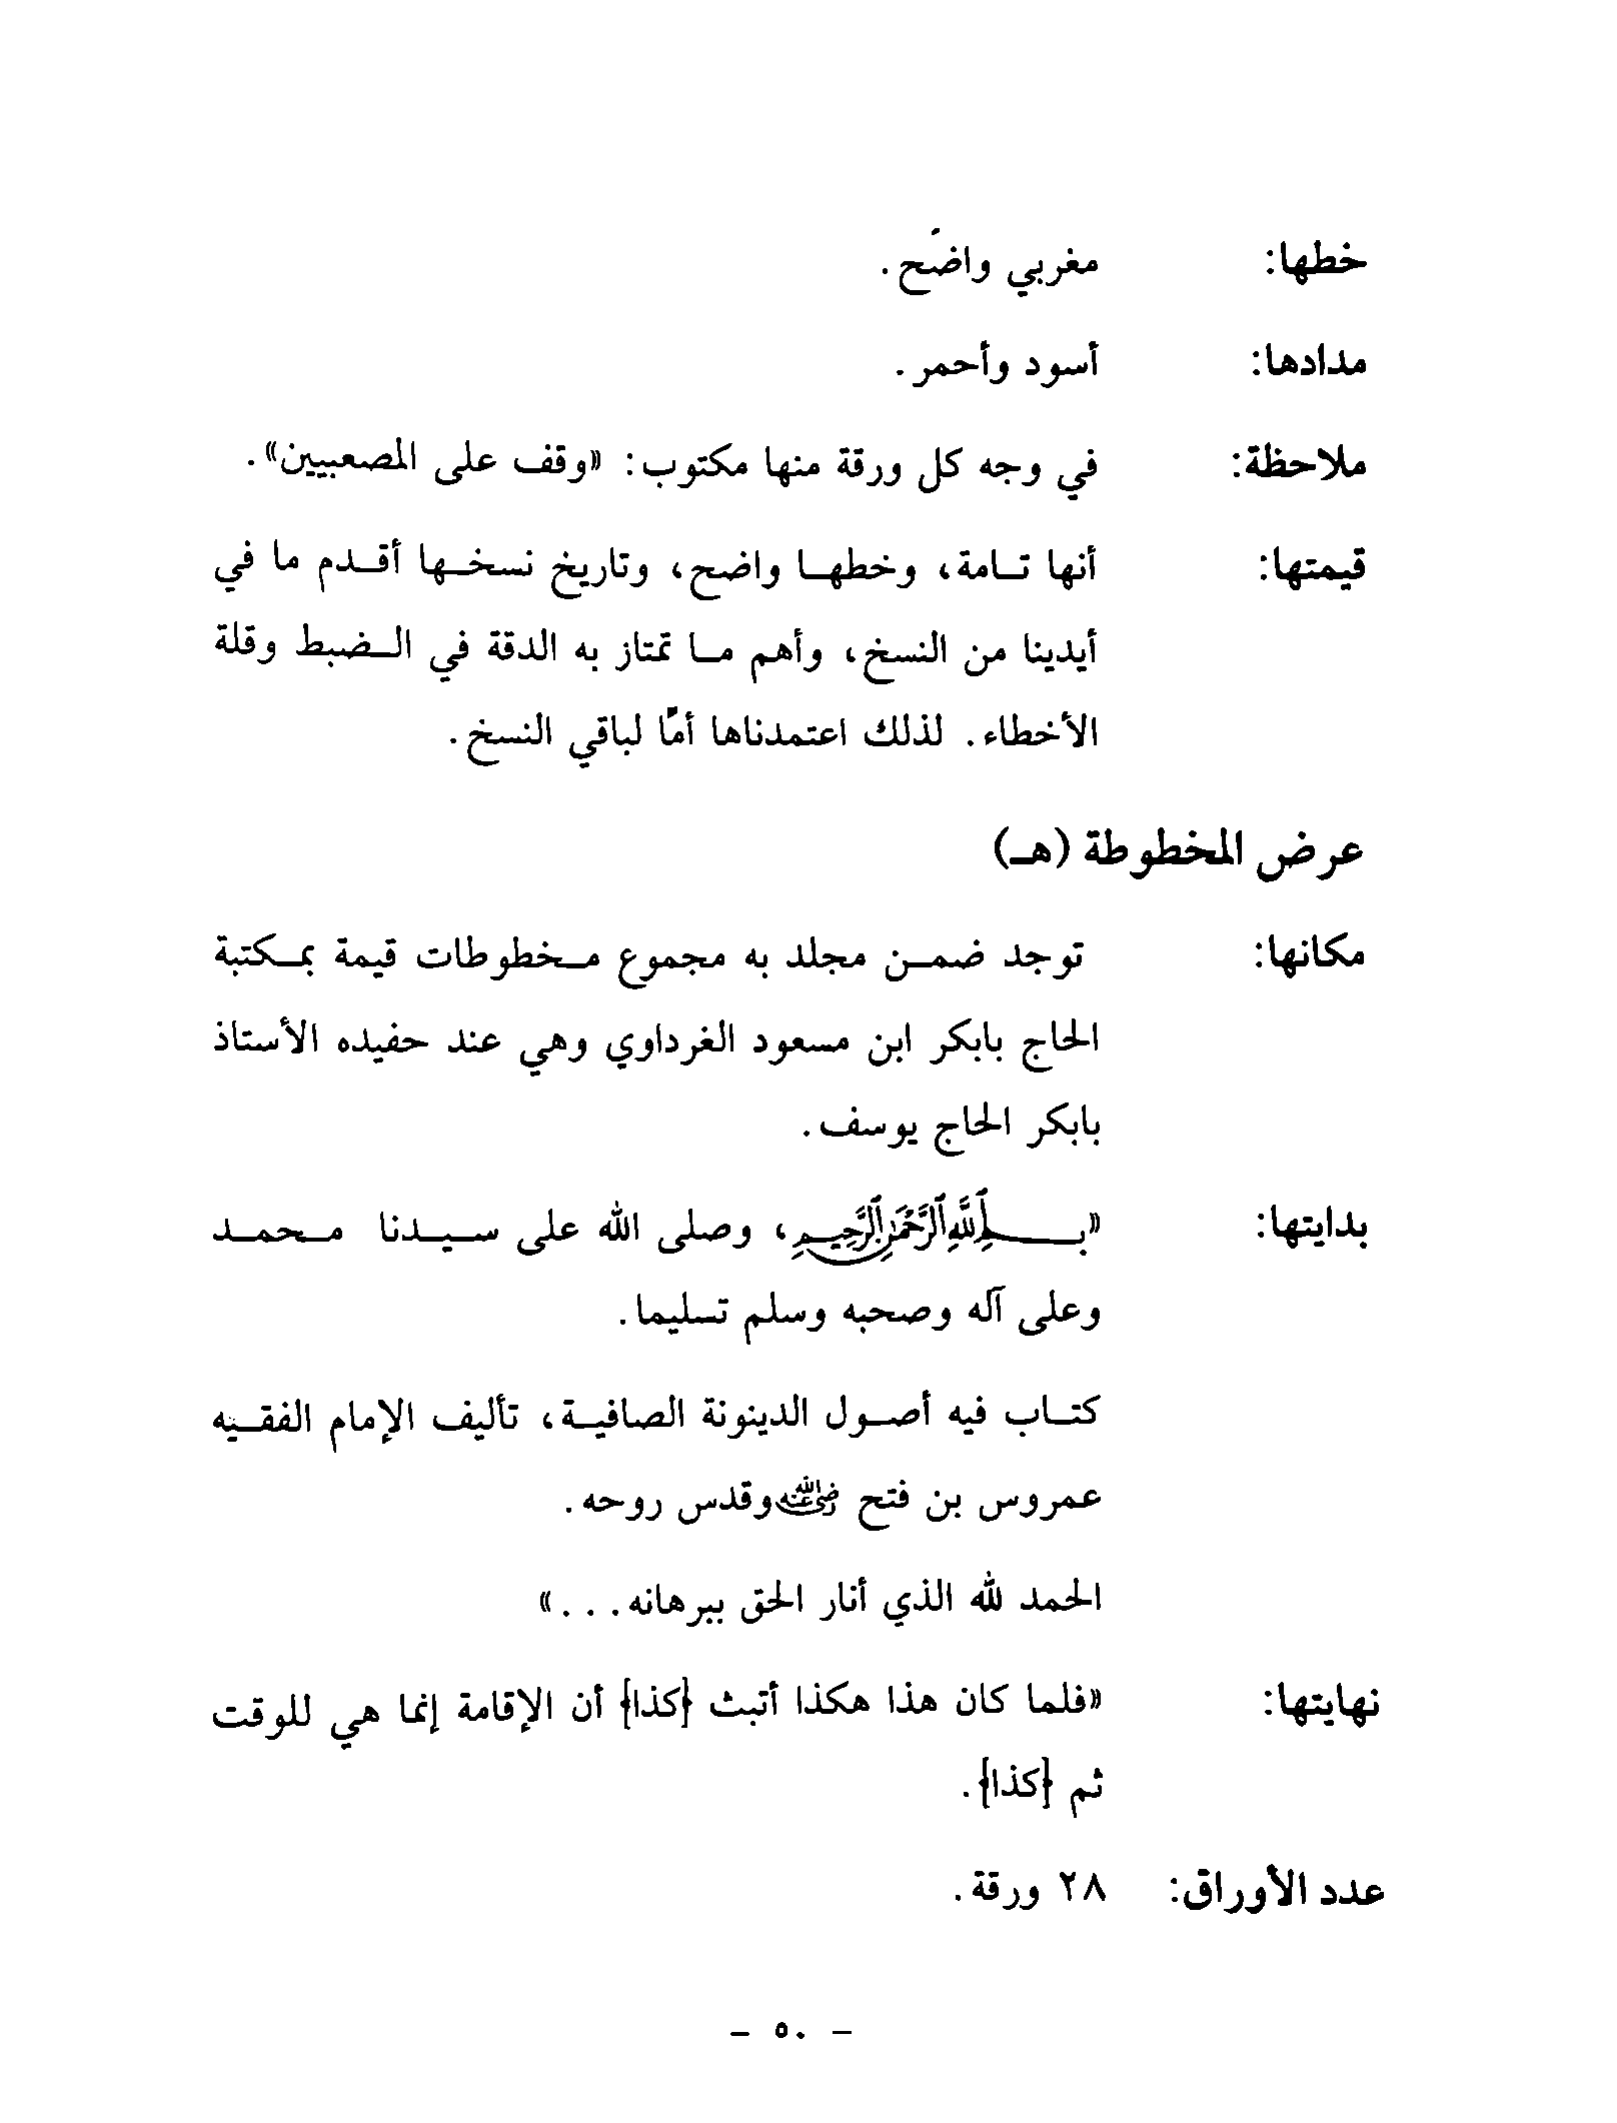 خطها: مغربي واضح.
مدادها: أسود وأحمر.
ملاحظة: في وجه كل ورقة منها مكتوب: «وقف على المصعبيين».
قيمتها: أنها تامة، وخطها واضح، وتاريخ نسخها أقدم ما في
أيدينا من النسخ، وأهم ما تمتاز به الدقة في الضبط وقلة
الأخطاء. لذلك اعتمدناها أمًا لباقي النسخ.
عرض المخطوطة (هـ)
مكانها: توجد ضمن مجلد به مجموع مخطوطات قيمة بمكتبة
الحاج بابكر ابن مسعود الغرداوي وهي عند حفيده الأستاذ
بابكر الحاج يوسف.
بدايتها: «بسم الله الرحمن الرحيم، وصلى الله على سيدنا محمد
وعلى آله وصحبه وسلم تسليما.
كتاب فيه أصول الدينونة الصافية، تأليف الإمام الفقيه
عمروس بن فتح رضي الله عنه وقدس روحه.
الحمد لله الذي أنار الحق ببرهانه...»
نهايتها: «فلما كان هذا هكذا أتبث {كذا} أن الإقامة إنما هي للوقت
ثم {كذا}.
عدد الأوراق: ٢٨ ورقة.
- ٥٠ -